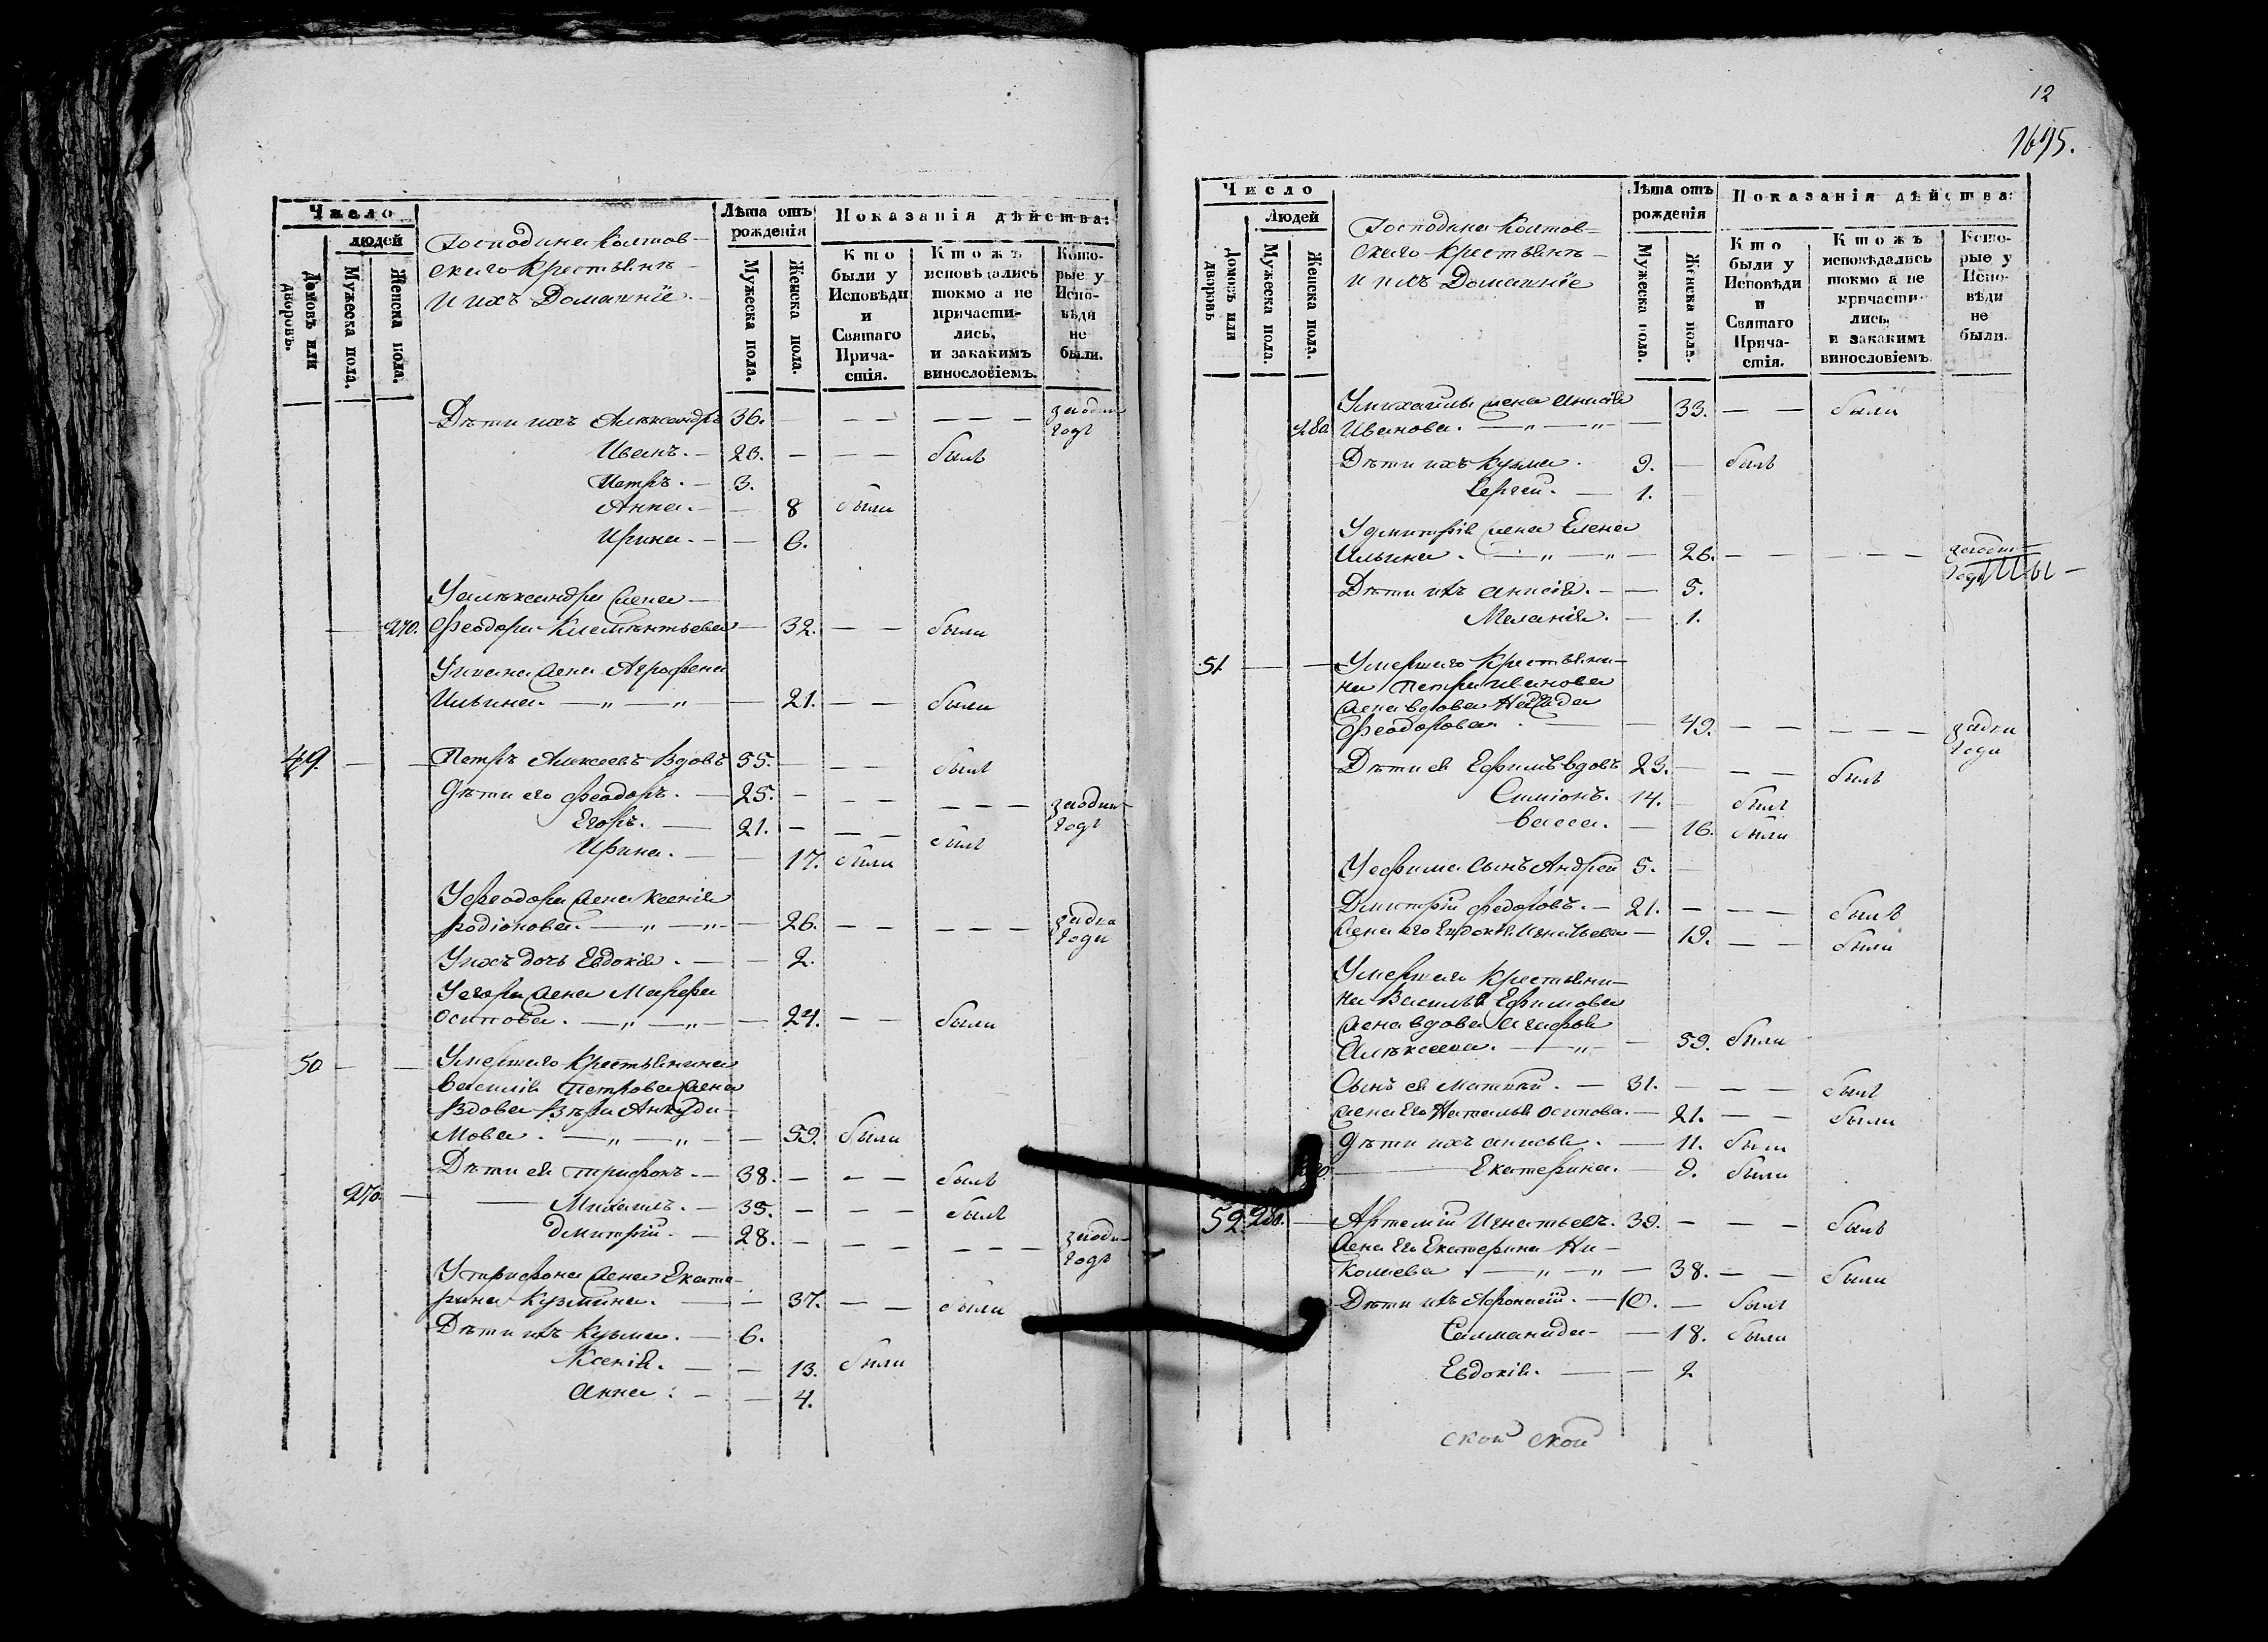 Число
людей
Домовъ или дворовъ.
Мужеска пола.
Женска пола.
Господина Колтов-
скаго крестьянѣ
и ихъ Домашніе.
Лѣта отъ рожденія
Мужеска пола.
Женска пола.
Показанія дѣйства:
Кто были у Исповѣди и Святаго Прича-стія.
Ктожъ исповѣдались токмо а не причасти-лись, и закакимъ винословіемъ.
Кото-рые у Испо-вѣди не были.
Дѣти ихъ Алѣксандръ 36. — — — — — — заодин годъ
Иванъ. — 23. — — — былъ
Петръ. — 3.
Анна. — — 8 были
Ирина. — — 6.
У Алѣксандра жена —
270. Феодора Климѣнтьева — 32. — — были
У Ивана жена Агрофена
Ильина. — „ — „ — 21. — — были
49. — — Петръ Алексеевъ вдовъ 55. — — — былъ
Дѣти его Феодоръ. — 25. — — — — — — заодин годъ
Егоръ. — 21. — — — былъ
Ирина. — — 17. были
У Феодора жена Ксенія
Родіонова. — „ — „ — 26. — — — — — задва года
У ихъ дочь Евдокія. — — 2.
У Егора жена Марфа
Осипова. — „ — „ — 24. — — были
50 — — Умершаго крестьянина
Василія Петрова жена
вдова Вѣра Анкуди-
мова. — „ — „ — — 59. были
Дѣти ея Трифонъ. — 38. — — — былъ
270. — — Михаилъ. — 35. — — — былъ
Дмитрій. — 28. — — — — — — заоди годъ
У Трифона жена Екате-
рина Кузмина. — — 37. — — были
Дѣти ихъ Кузма. — 6.
Ксенія. — — 13. были
Анна. — — 4.
12
1695.
Число
Людей
Домовъ или дворовъ
Мужеска пола.
Женска пола.
Господина Колтов=
скаго крестьянѣ
и ихъ Домашніе
Лѣта отъ рожденія
Мужеска пола.
Женска пола.
Показанія дѣйства:
Кто были у Исповѣди и Святаго Прича-стія.
Ктожъ исповѣдались токмо а не причасти-лись, и закакимъ винословіемъ.
Кото-рые у Испо-вѣди не были.
У Михаилы жена Анисія 33. — — были
280. Иванова. — „ — „ —
Дѣти ихъ Кузма. 9. — былъ
Сергей. — 1. —
У Дмитрія жена Елена
Ильина. — „ — „ — 26. — — — — — заодин годъ
Дѣти ихъ Анисія. — — 5.
Меланія. — 1.
51. — — Умершаго крестьяни-
на Петра Иванова
жена вдова
Феодорова. — — 49. — — — — — задва года
Дѣти ея Ефимъ вдовъ 23. — — — былъ
Симіонъ. 14. — былъ
Васса. — 16. были
У Ефима сынъ Андрей 5. —
Дмитрій Федоровъ. — 21. — — — былъ
жена его Евдокія Игнатьева — 19. — — были
Умершаго крестьяни-
на Василья Ефимова
жена вдова Агафья
Алѣксеева. — „ — 59. были
Сынъ ея Матвѣй. — 31. — — — былъ
жена его Наталья Осипова. — 21. — — были
Дѣти ихъ Анисья. — 11. были
— Екатерина. — 9. были
52 280. — Артемій Игнатьевъ. 39. — — — былъ
жена его Екатерина Ни-
колаева — „ — „ — 38. — — были
Дѣти ихъ Афонасій. — 10. — былъ
Саламанида — — 18. были
Евдокія. — — 2
ской ской